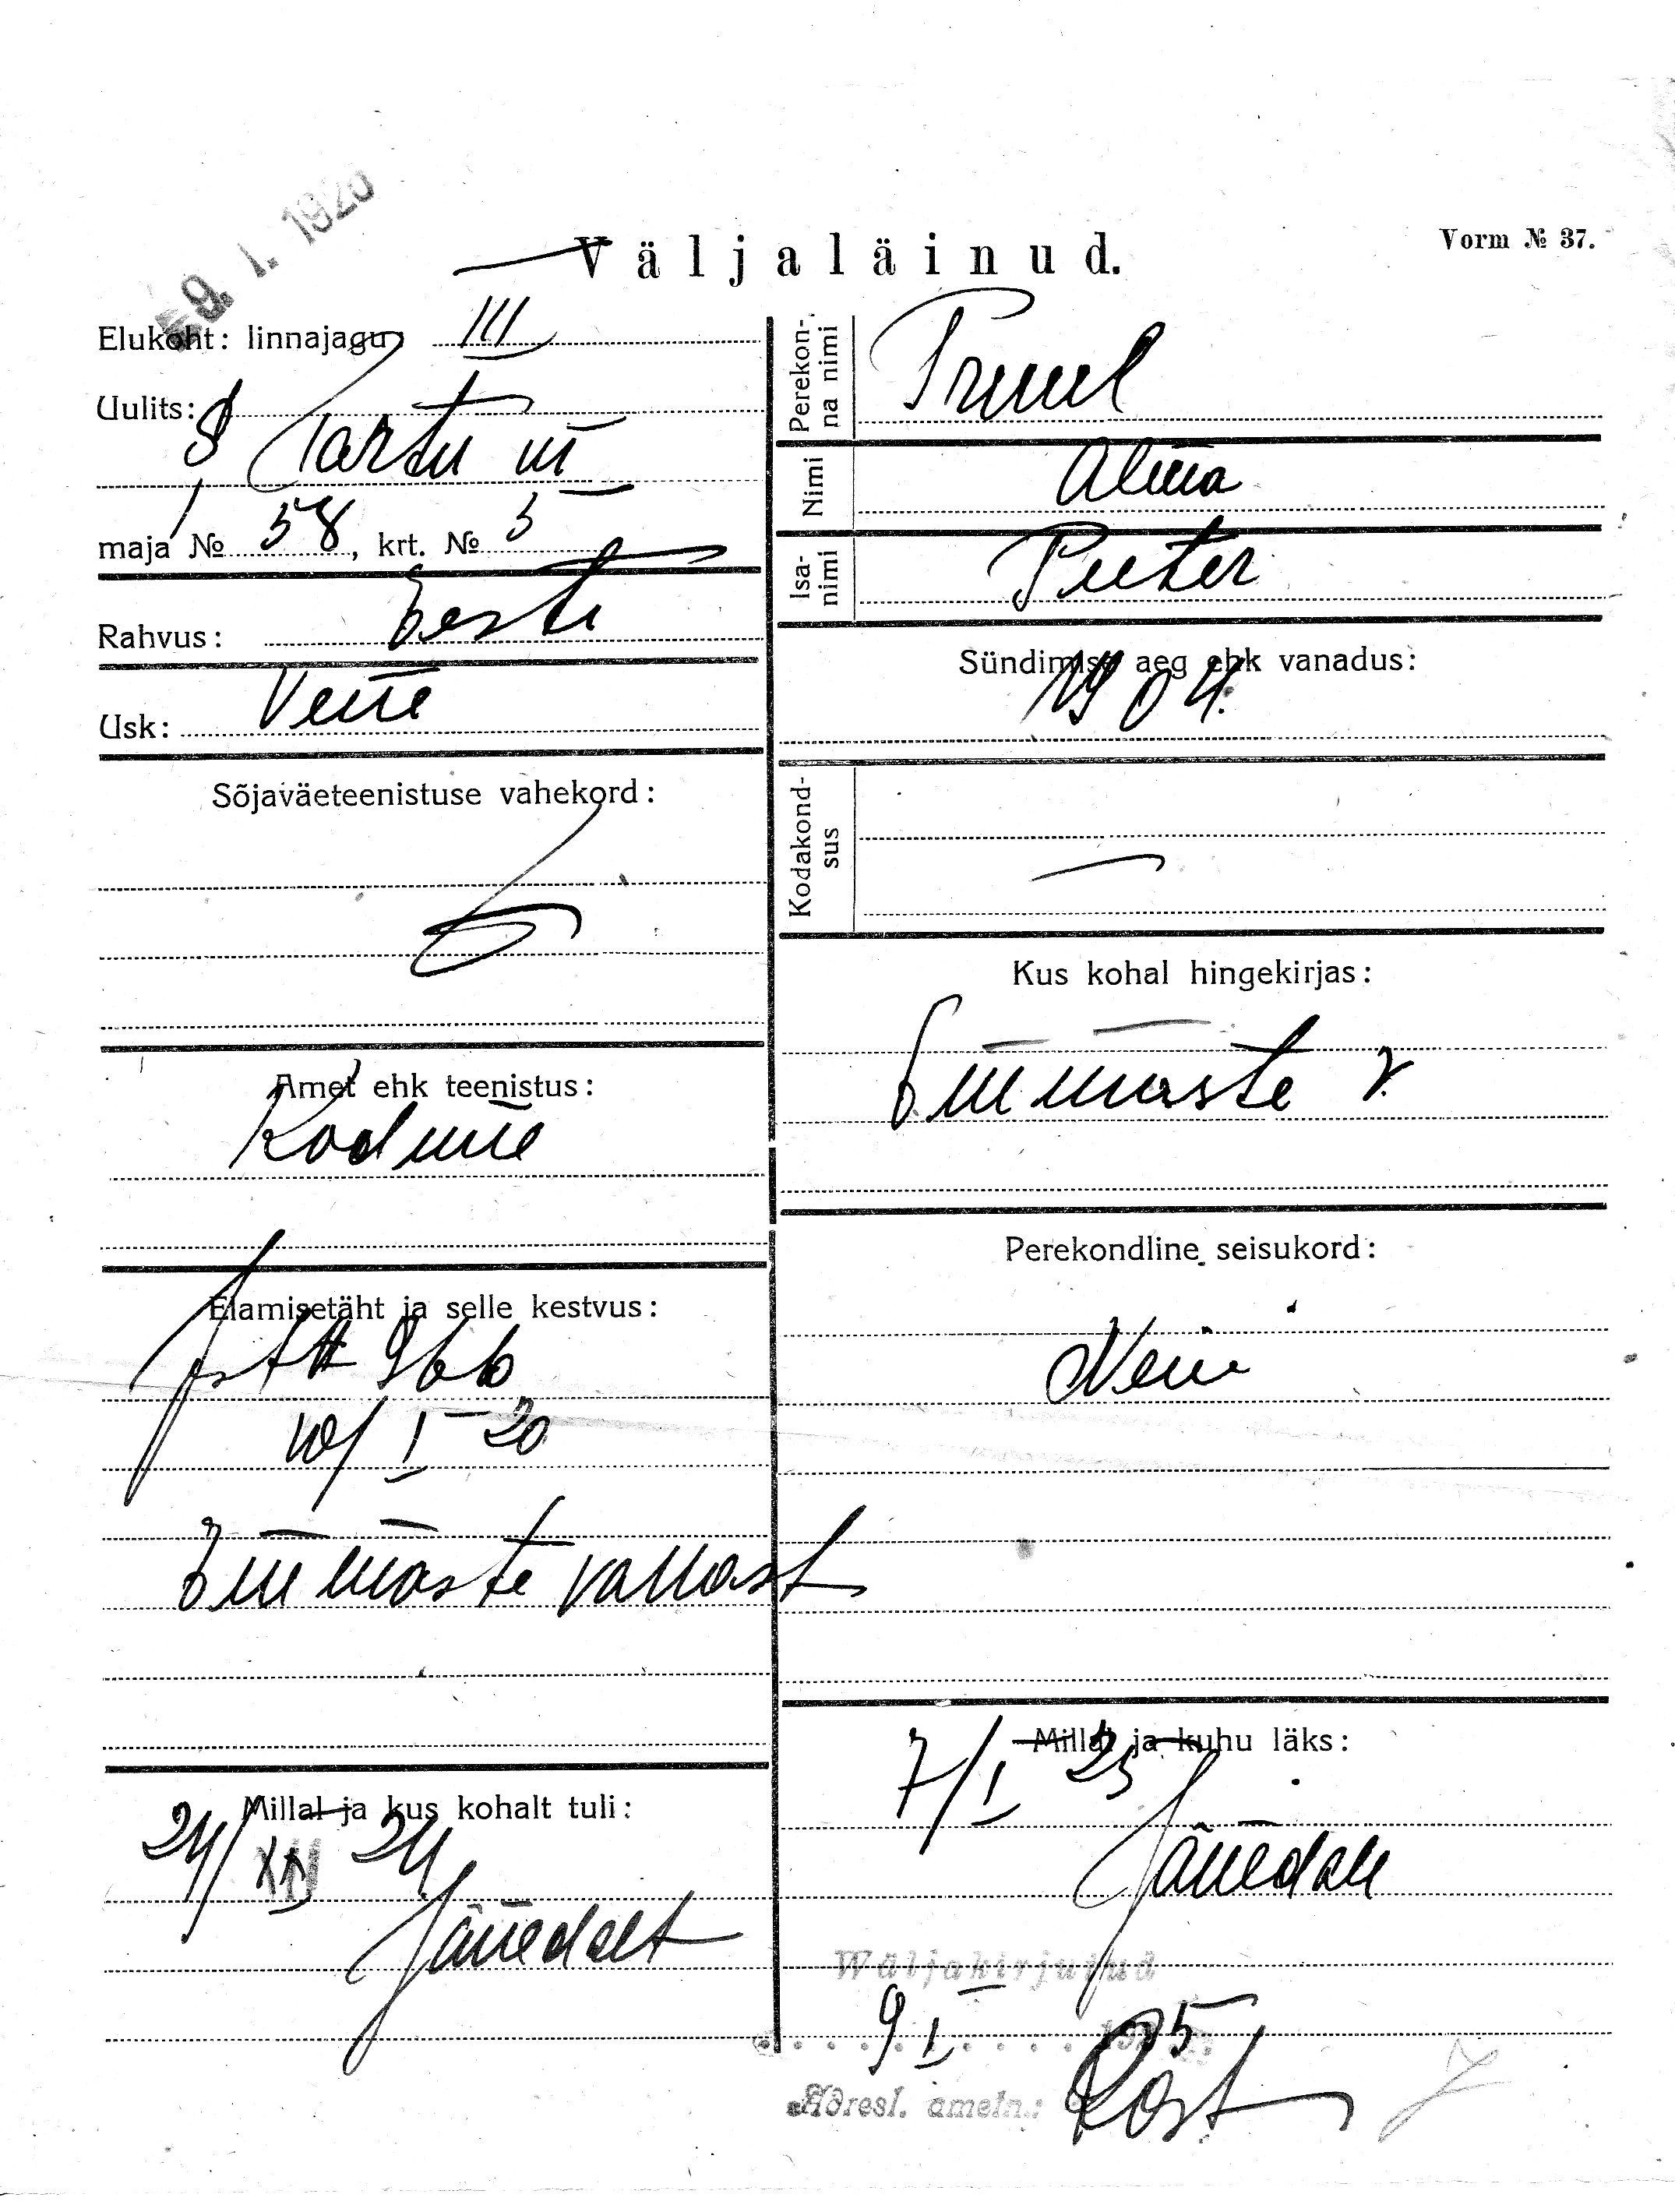 9. I. 1925
Väljaläinud.
Vorm № 37.
Elukoht: linnajagu III
Uulits:
S Tartu m
maja № 58, krt. № 5
Rahvus: Eesti
Usk: Vene
Sõjaväeteenistuse vahekord:
Amet ehk teenistus:
Kodune
Elamisetäht ja selle kestvus:
966
10/I 20
Emmaste vallast
Millal ja kus kohalt tuli:
24/XII 24
Jänedalt
Perekonna nimi
Pruul
Nimi
Alma
Isanimi
Peeter
Sündimise aeg ehk vanadus:
1904.
Kodakondsus
Kus kohal hingekirjas:
Emmaste v.
Perekondline seisukord:
Neiu
Millal ja kuhu läks:
7/I 25
Jänedale
Wäljakirjutud
9 I 1925
Adresl. ametn.: Kost